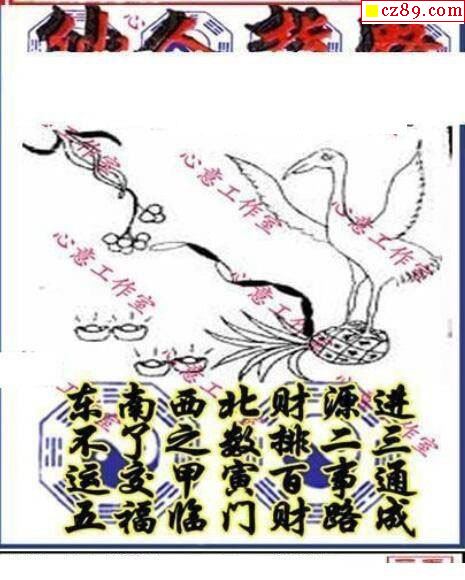 cz89.com
工作室
心意工作室
心意工作室
心意工作室
心意工作室
心意工作室
东南西北财源进
不了之数排二三
运交甲寅百事通
五福临门财路成